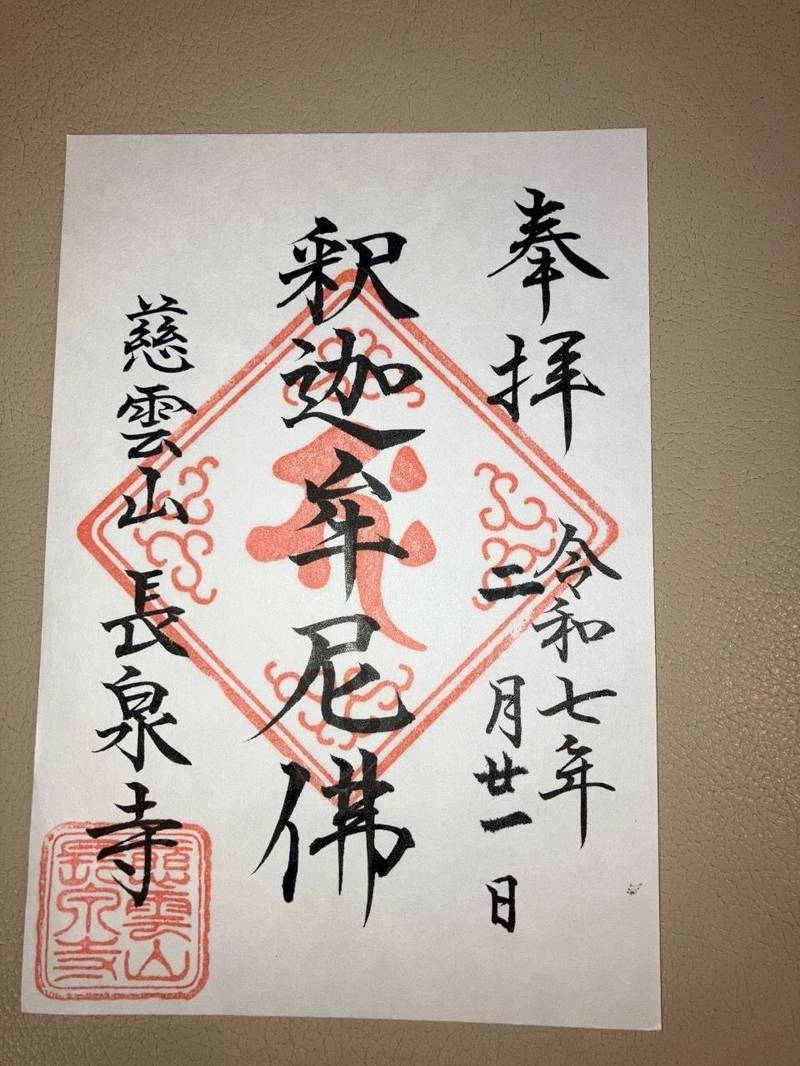 奉拝
令和七年
二月廿一日
釈迦牟尼佛
慈雲山 長泉寺
慈雲山
長泉寺